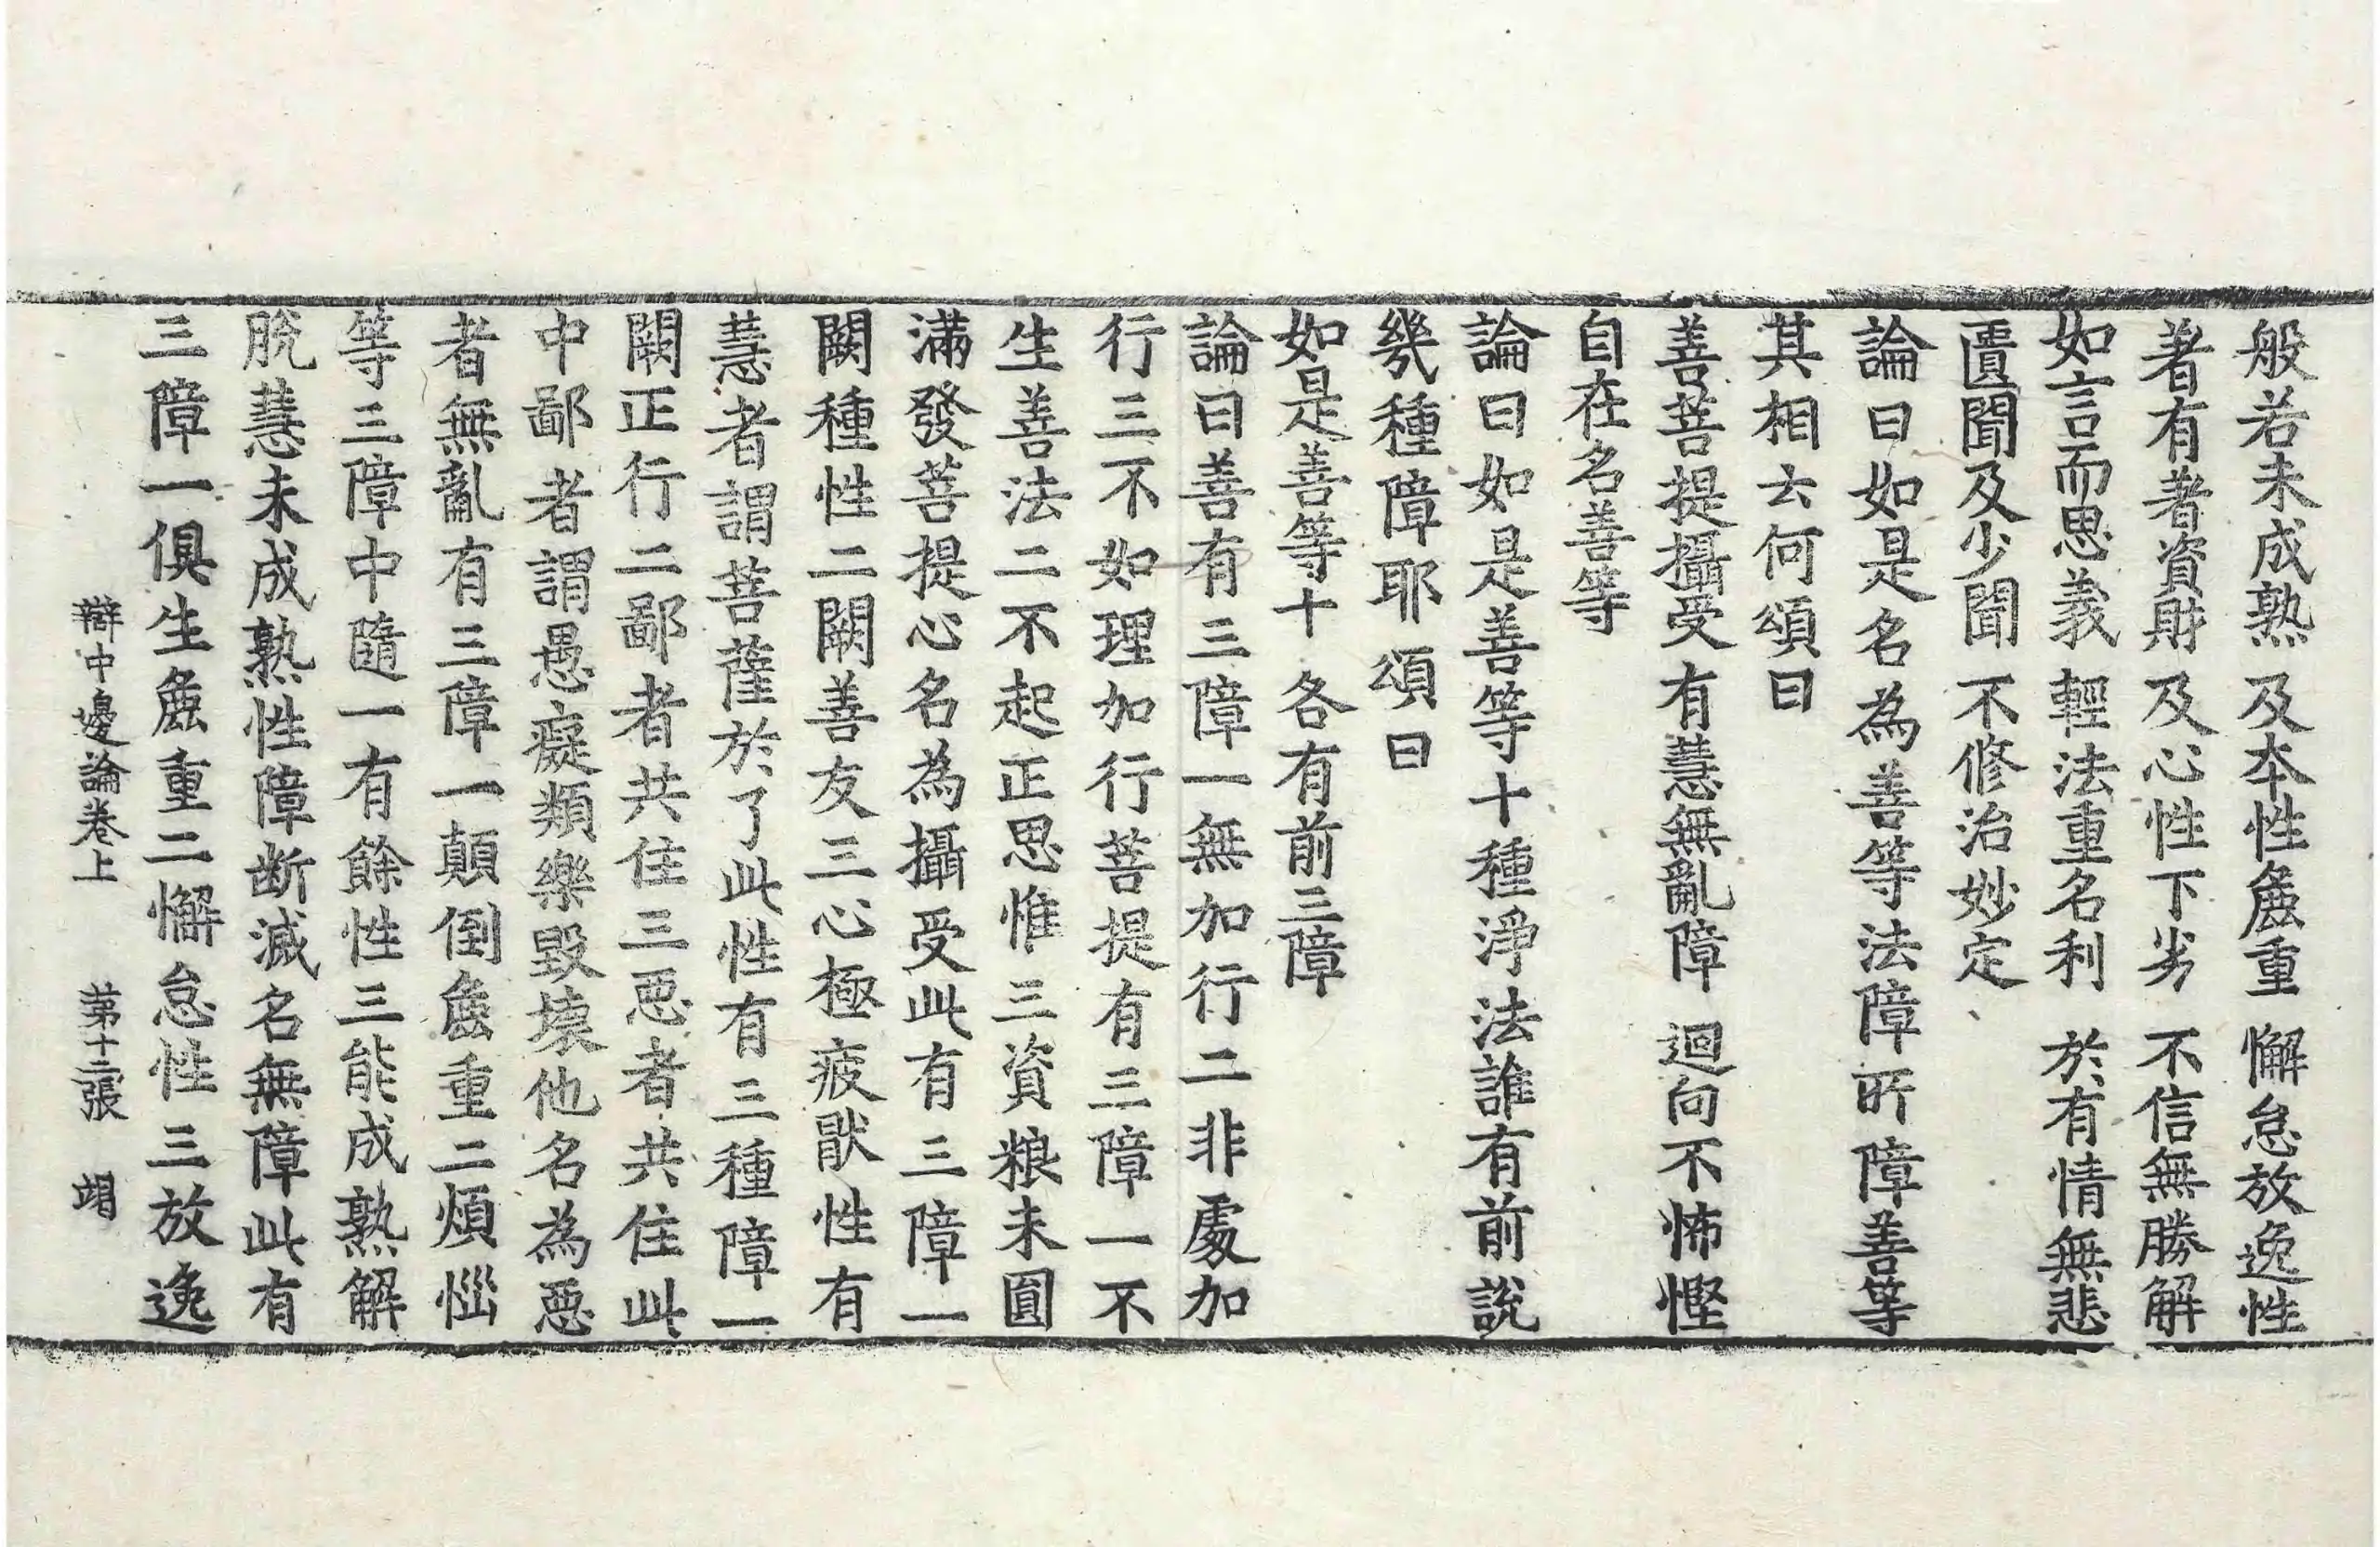 般若未成熟　及本性麁重　懈怠放逸性
著有著資財　及心性下劣　不信無勝解
如言而思義　輕法重名利　於有情無悲
匱聞及少聞　不修治妙定
論曰如是名為善等法障所障善等
其相云何頌曰
善菩提攝受　有慧無亂障　迴向不怖慳
自在名善等
論曰如是善等十種淨法誰有前說
幾種障耶頌曰
如是善等十　各有前三障
論曰善有三障一無加行二非處加
行三不如理加行菩提有三障一不
生善法二不起正思惟三資粮未圓
滿發菩提心名為攝受此有三障一
闕種性二闕善友三心極疲猒性有
慧者謂菩薩於了此性有三種障一
闕正行二鄙者共住三惡者共住此
中鄙者謂愚癡類樂毀壞他名為惡
者無亂有三障一顛倒麁重二煩惱
等三障中隨一有餘性三能成熟解
脫慧未成熟性障断滅名無障此有
三障一俱生麁重二懈怠性三放逸
辯中邊論卷上　第十二張　竭